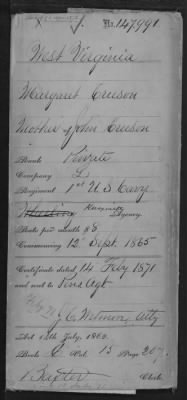 No. 147,991
West Virginia
Margaret Creeson
Mother of John Creeson
Rank Private
Company L.
Regiment 1st U S Cavy.
Wheeling Knoxville Agency.
Rate per month $8
Commencing 12th Sept. 1865
Certificate dated 14 Feby 1871
and sent to Pens Agt
Atty
Act 14th July, 1862.
Book Vol. 13 Page 207.
Baxter Clerk.